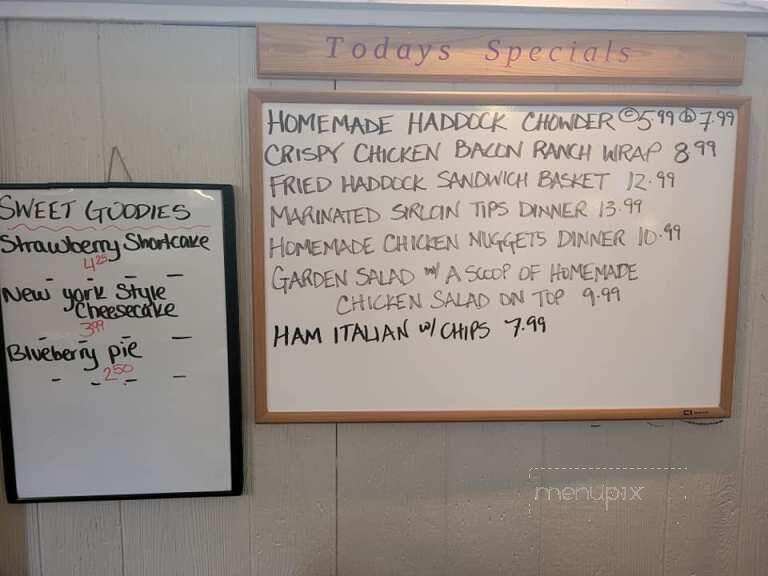 Todays Specials
HOMEMADE HADDOCK CHOWDER Ⓒ5.99 Ⓑ7.99
CRISPY CHICKEN BACON RANCH WRAP 8.99
FRIED HADDOCK SANDWICH BASKET 12.99
MARINATED SIRLOIN TIPS DINNER 13.99
HOMEMADE CHICKEN NUGGETS DINNER 10.99
GARDEN SALAD w/ A SCOOP OF HOMEMADE
CHICKEN SALAD ON TOP 9.99
HAM ITALIAN w/ CHIPS 7.99
SWEET GOODIES
Strawberry Shortcake
4.25
New york Style
Cheesecake
3.99
Blueberry pie
2.50
menupix